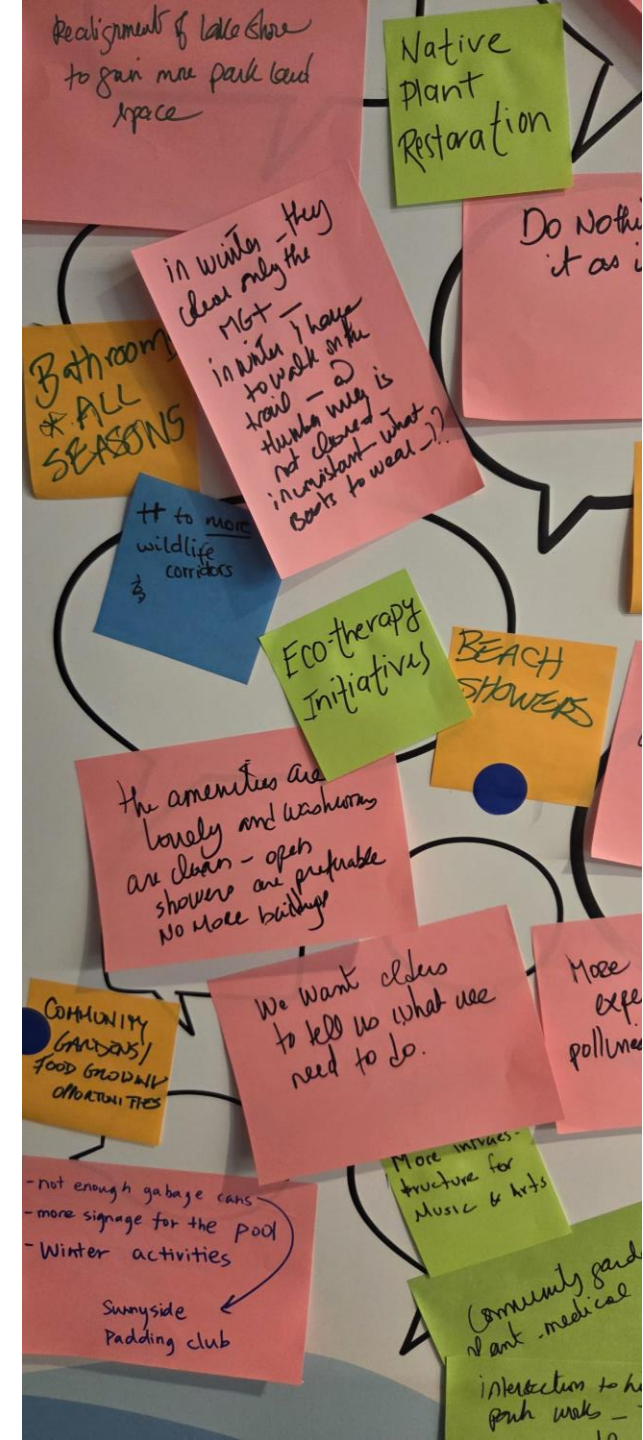 Realignment of lake shore
to gain more park land
space
Native
Plant
Restoration
Do Nothi
it as i
in winter they
clear only the
MGT —
in winter I have
to walk on the
trail — @
Humber is
not cleared
what
Boots to wear —??
Bathroom
* ALL
SEASONS
++ to more
wildlife
corridors
&
Eco-therapy
Initiatives
BEACH
SHOWERS
the amenities are
lovely and washrooms
are clean – open
showers are preferable
No More buildings
We want elders
to tell us what we
need to do.
More
expe
polline
COMMUNITY
GARDENS/
FOOD GROWING
OPPORTUNITIES
More infraes-
tructure for
Music & Arts
- not enough gabage cans
- more signage for the pool
- Winter activities
Sunnyside
Padding club
Community garde
plant - medical
intersection to h
park works –